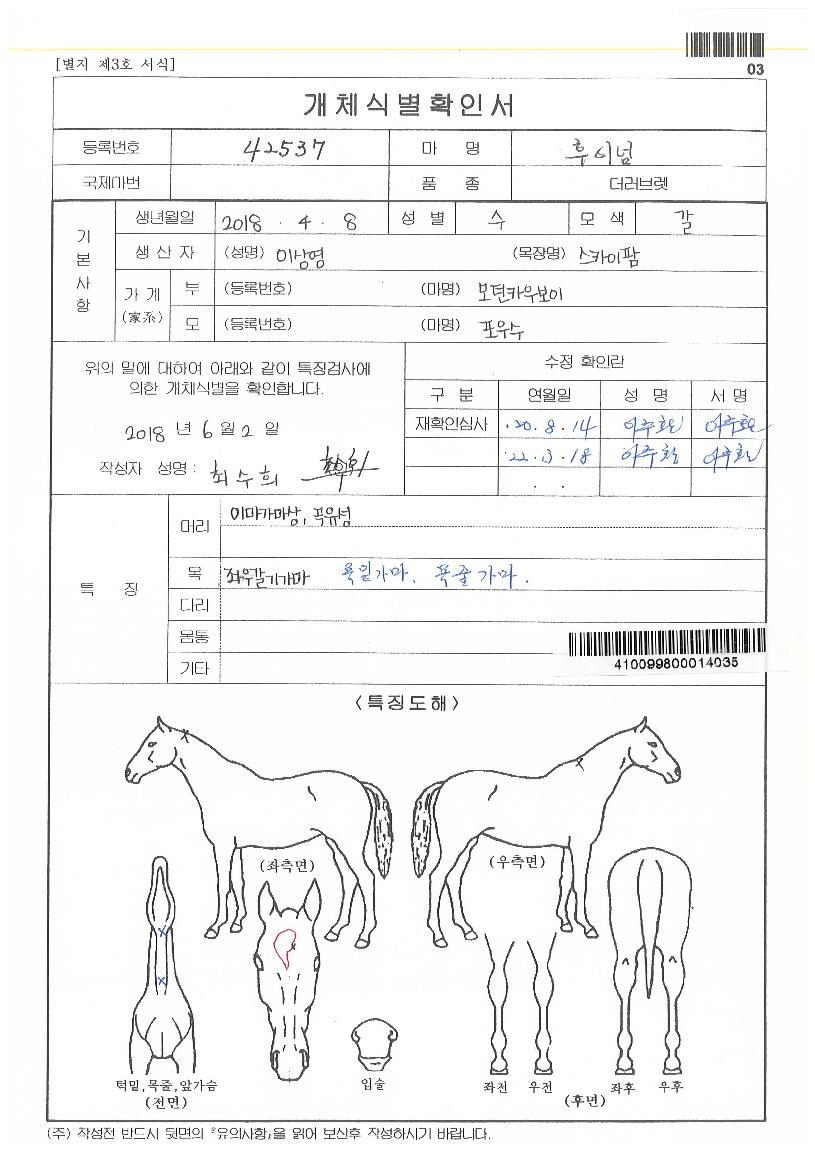 03
[별지 제3호 서식]
개체식별확인서
등록번호 42537 마 명 후이넘
국제마번 품 종 더러브렛
기본사항
생년월일 2018 . 4 . 8 성 별 수 모 색 갈
생 산 자 (성명) 이상영 (목장명) 스카이팜
가 계 (家系) 부 (등록번호) (마명) 모던카우보이
모 (등록번호) (마명) 포우수
위의 말에 대하여 아래와 같이 특징검사에
의한 개체식별을 확인합니다.
2018 년 6 월 2 일
작성자 성명 : 최수희
수정 확인란
구 분 연월일 성 명 서 명
재확인심사 .20.8.14
22.3.18
. .
특 징
머리 이마가마상, 곡유성
목 좌우갈기가마 목밑가마, 목줄가마.
다리
몸통
기타
410099800014035
<특징도해>
(좌측면) (우측면)
턱밑,목줄,앞가슴
(전면)
입술
좌전 우전 좌후 우후
(후면)
(주) 작성전 반드시 뒷면의 『유의사항』을 읽어 보신후 작성하시기 바랍니다.